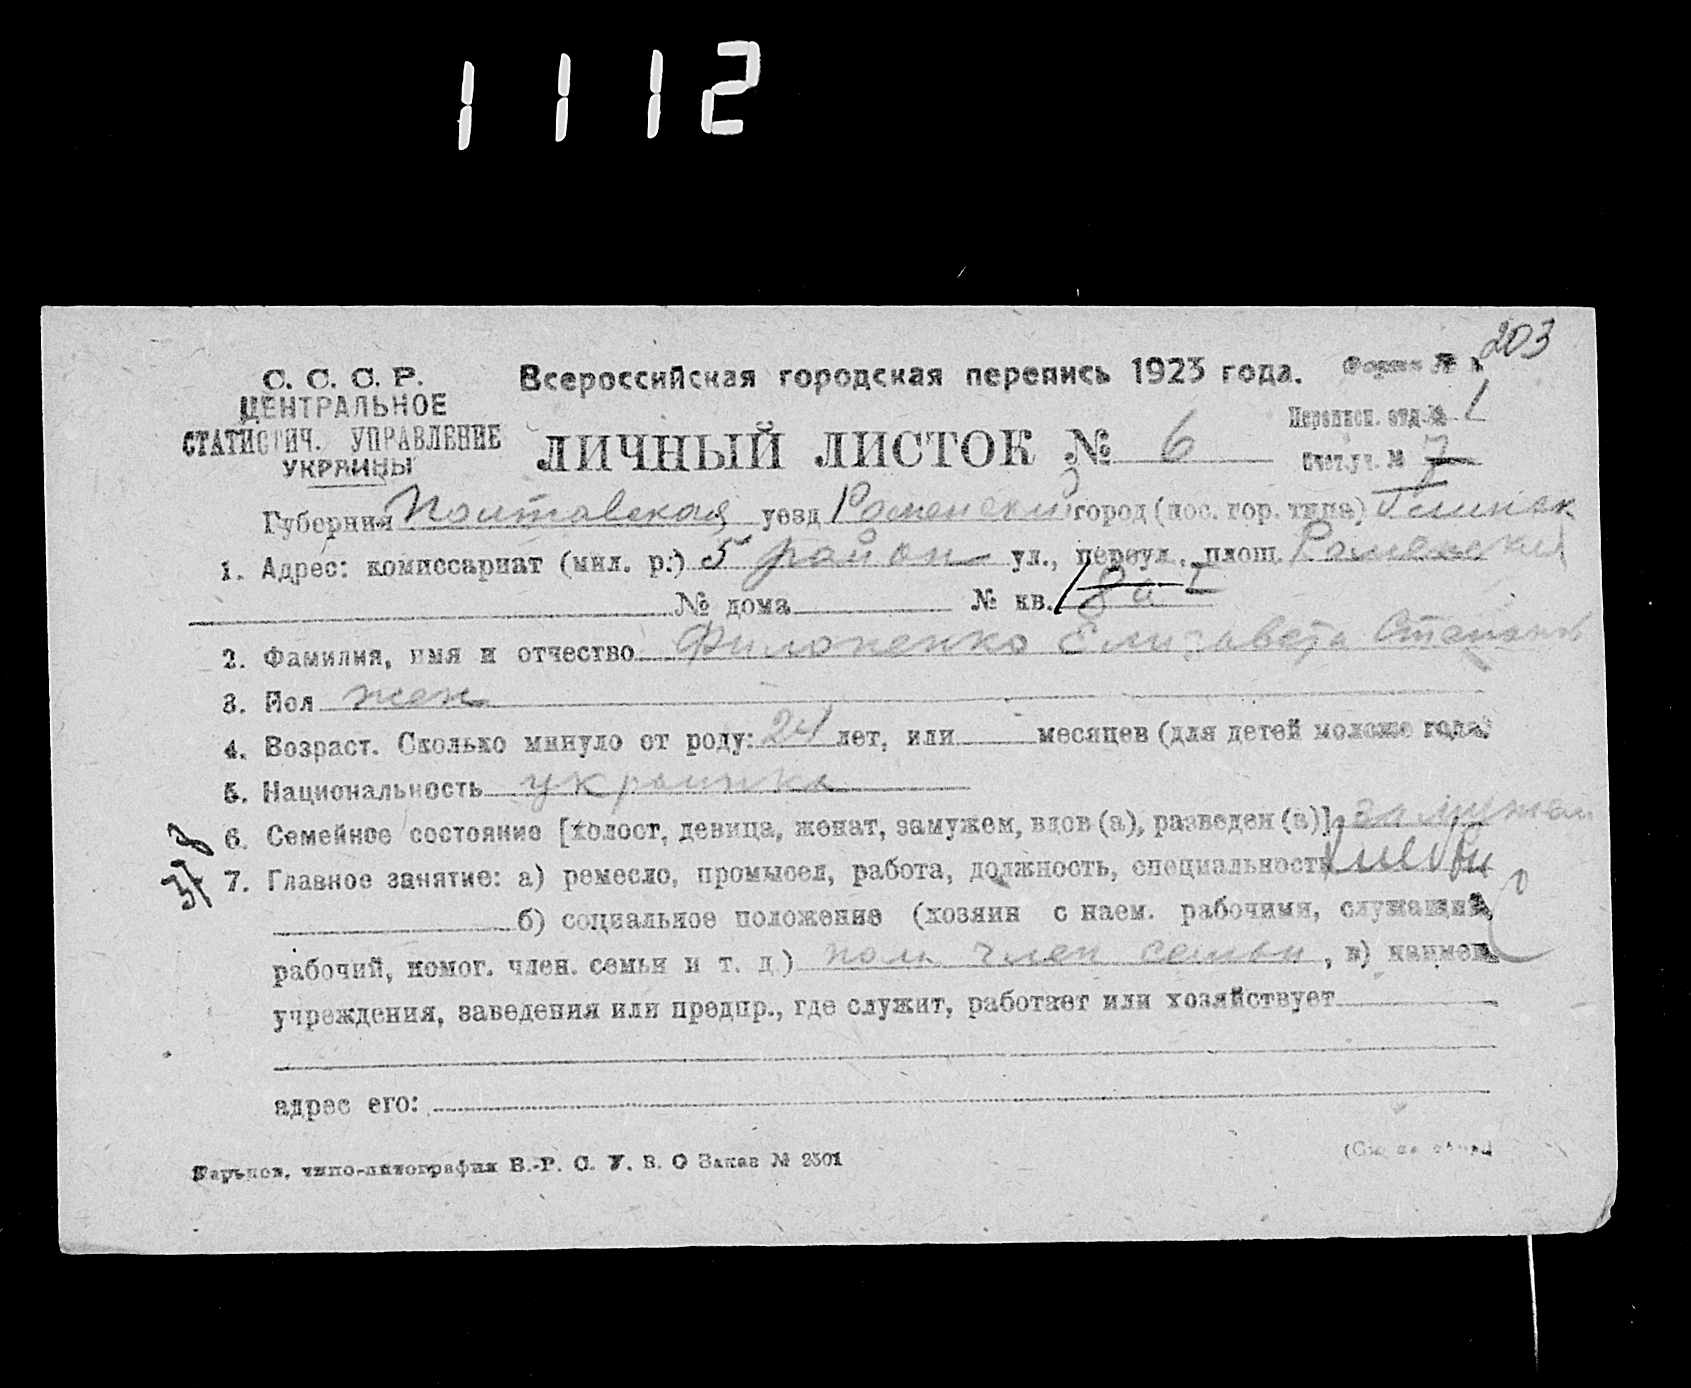 1112
203
С. С. С. Р.
ЦЕНТРАЛЬНОЕ
СТАТИСТИЧ. УПРАВЛЕНИЕ
УКРАИНЫ
Всероссийская городская перепись 1923 года.
Форма № 1
Переписн. отд. № 1
ЛИЧНЫЙ ЛИСТОК № 6
Счет. уч. № 7
Губерния Полтавская уезд Роменский город (пос. гор. типа) Глинск
1. Адрес: комиссариат (мил. р.) 5 район ул., переул., площ. Роменская
№ дома № кв. 8а
2. Фамилия, имя и отчество Филоненко Елизавета Степанов
3. Пол жен
4. Возраст. Сколько минуло от роду: 24 лет, или месяцев (для детей моложе года)
5. Национальность украинка
6. Семейное состояние [холост, девица, женат, замужем, вдов (а), разведен (а)] замужем
37 8
7. Главное занятие: а) ремесло, промысел, работа, должность, специальность
б) социальное положение (хозяин с наем. рабочими, служащий,
рабочий, помог. член. семьи и т. д.) пом. член семьи, в) наимен.
учреждения, заведения или предпр., где служит, работает или хозяйствует
адрес его:
Харьков, типо-литография В.-Р. С. У. В. О Заказ № 2501